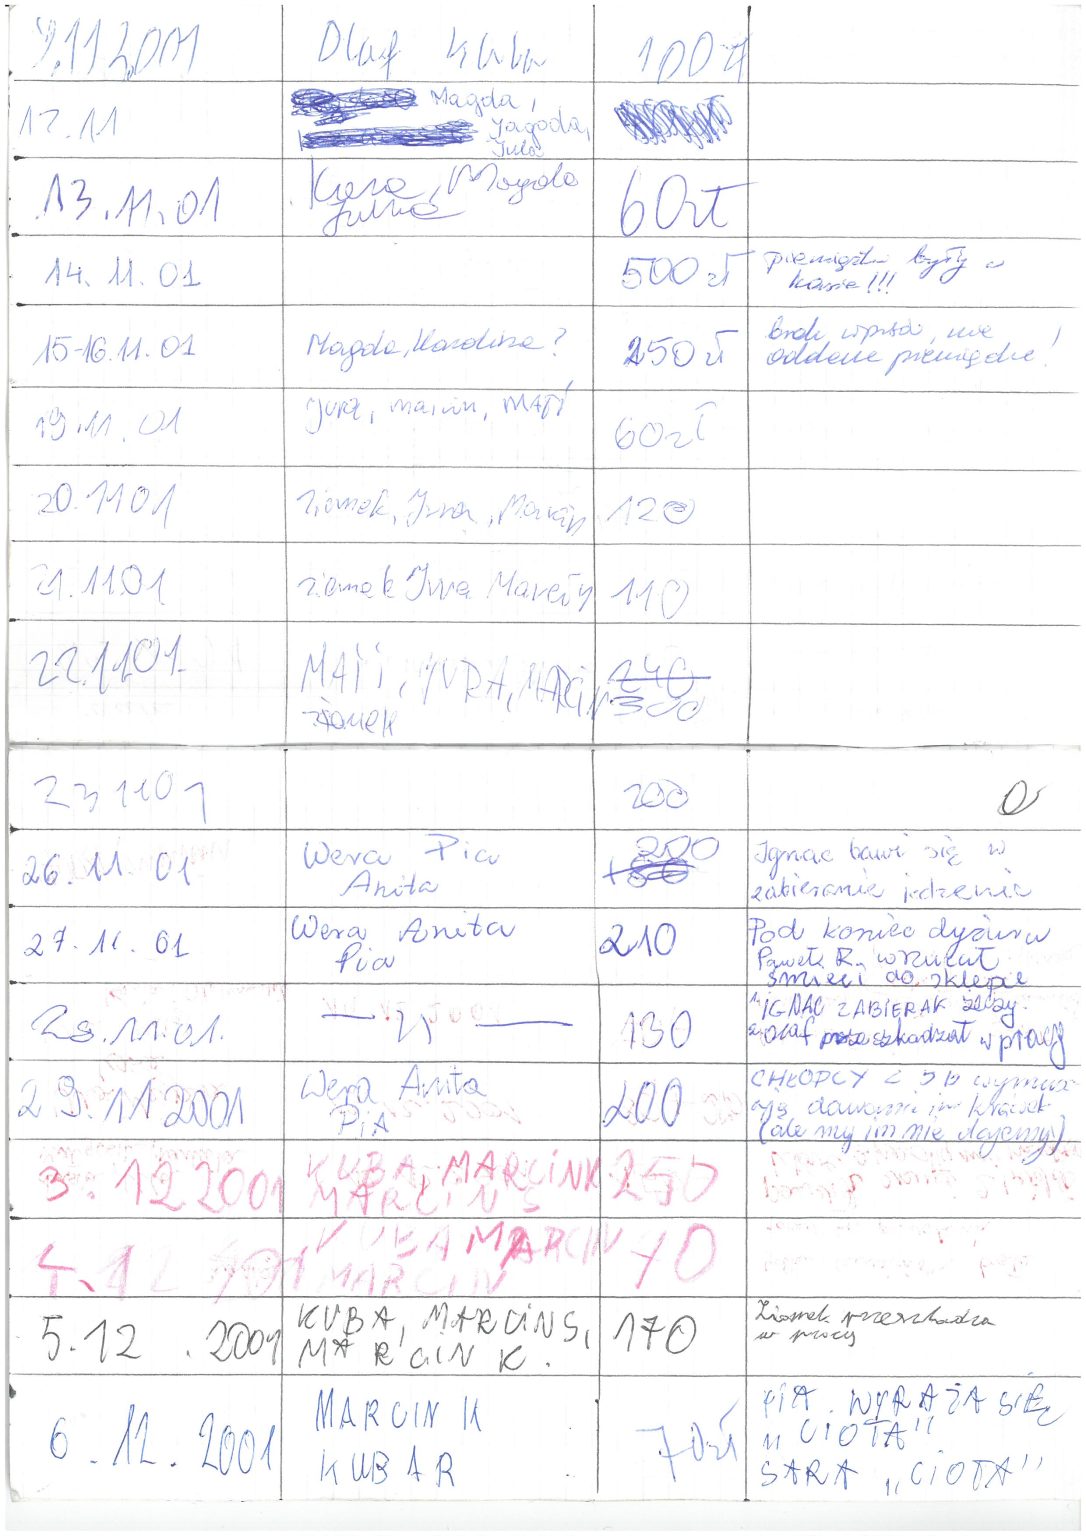 9.11 2001 Olaf Kuba 100 zł
12.11 Magda,
Jagoda,
Jula
13.11.01 Kara, Magda 60 zł
Julka
14.11.01 500 zł pieniądze były w
kasie!!!
15-16.11.01 Magda, Karolina? 250 zł brak wpisu, nie
oddane pieniądze!
19.11.01 Jura, Marcin, MATI 60 zł
20.11 01 Ziomek, Jura, Marcin 120
21.11 01 ziomek Jura 110
22.11.01 MATI, JURA, MARCIN 240
ziomek 300
23 11 01 200
26.11.01 Wera Pia 200 Ignac bawi się w
Anita +50 zabieranie jedzenia
27.11.01 Wera Anita 210 Pod koniec dyżuru
Pia Paweł R. wrzucał
śmieci do sklepu
28.11.01. — 11 — 130 1. IGNAC ZABIERAŁ rzeczy.
2. Olaf przeszkadzał w pracy
29.11 2001 Wera Anita 200 CHŁOPCY Z 5b wymusz
PIA ają dawanie im krówek
(ale my im nie dajemy!)
3.12 2001 KUBA, MARCIN K 250
MARCIN S
4.12 2001 KUBA MARCIN 70
MARCIN
5.12.2001 KUBA, MARCIN S, 170 Ziomek przeszkadza
MARCIN K. w pracy
6.12.2001 MARCIN K 70 zł PIA WYRAŻA SIĘ
KUBA R „CIOTA"
SARA „CIOTA"